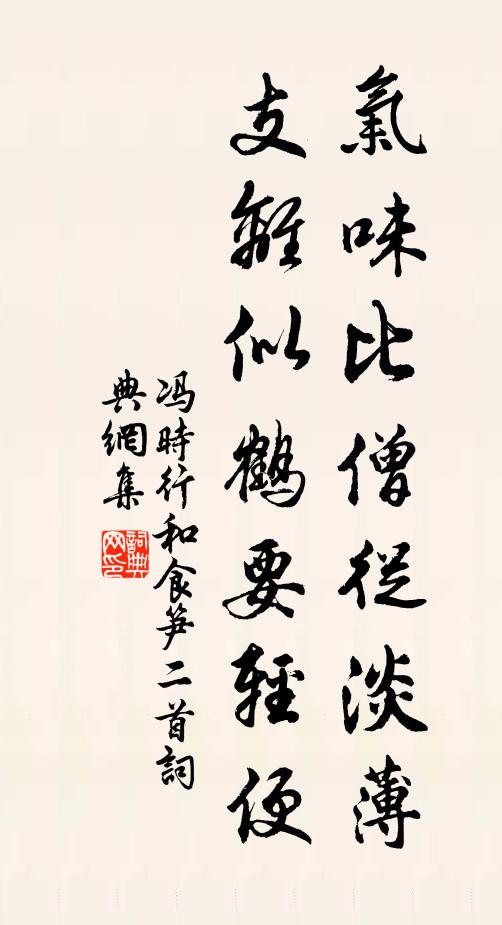 氣味比僧從淡薄
支離似鶴要輕便
冯時行和食笋二首詞
典網集
詞典
网印